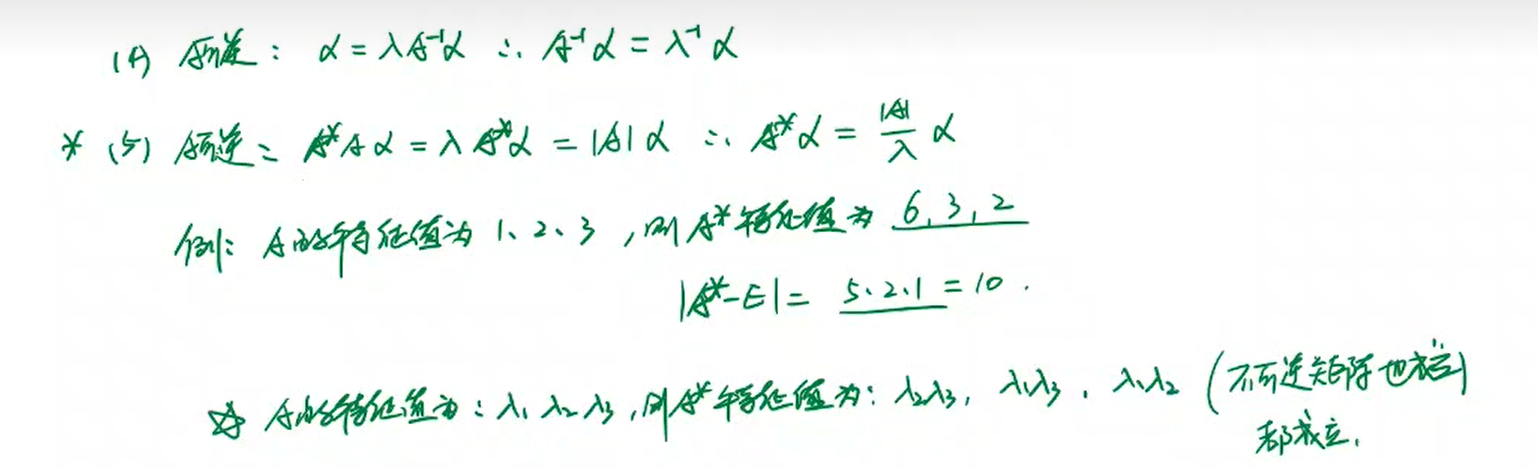 (4) A可逆: α = λA⁻¹α ∴ A⁻¹α = λ⁻¹α
* (5) A可逆: A*Aα = λA*α = |A|α ∴ A*α = |A|/λ α
例: A的特征值为 1、2、3, 则A*特征值为 6, 3, 2
|A*-E| = 5·2·1 = 10.
☆ A的特征值为: λ₁ λ₂ λ₃, 则A*特征值为: λ₂λ₃, λ₁λ₃, λ₁λ₂ (不可逆矩阵也成立)
都成立.